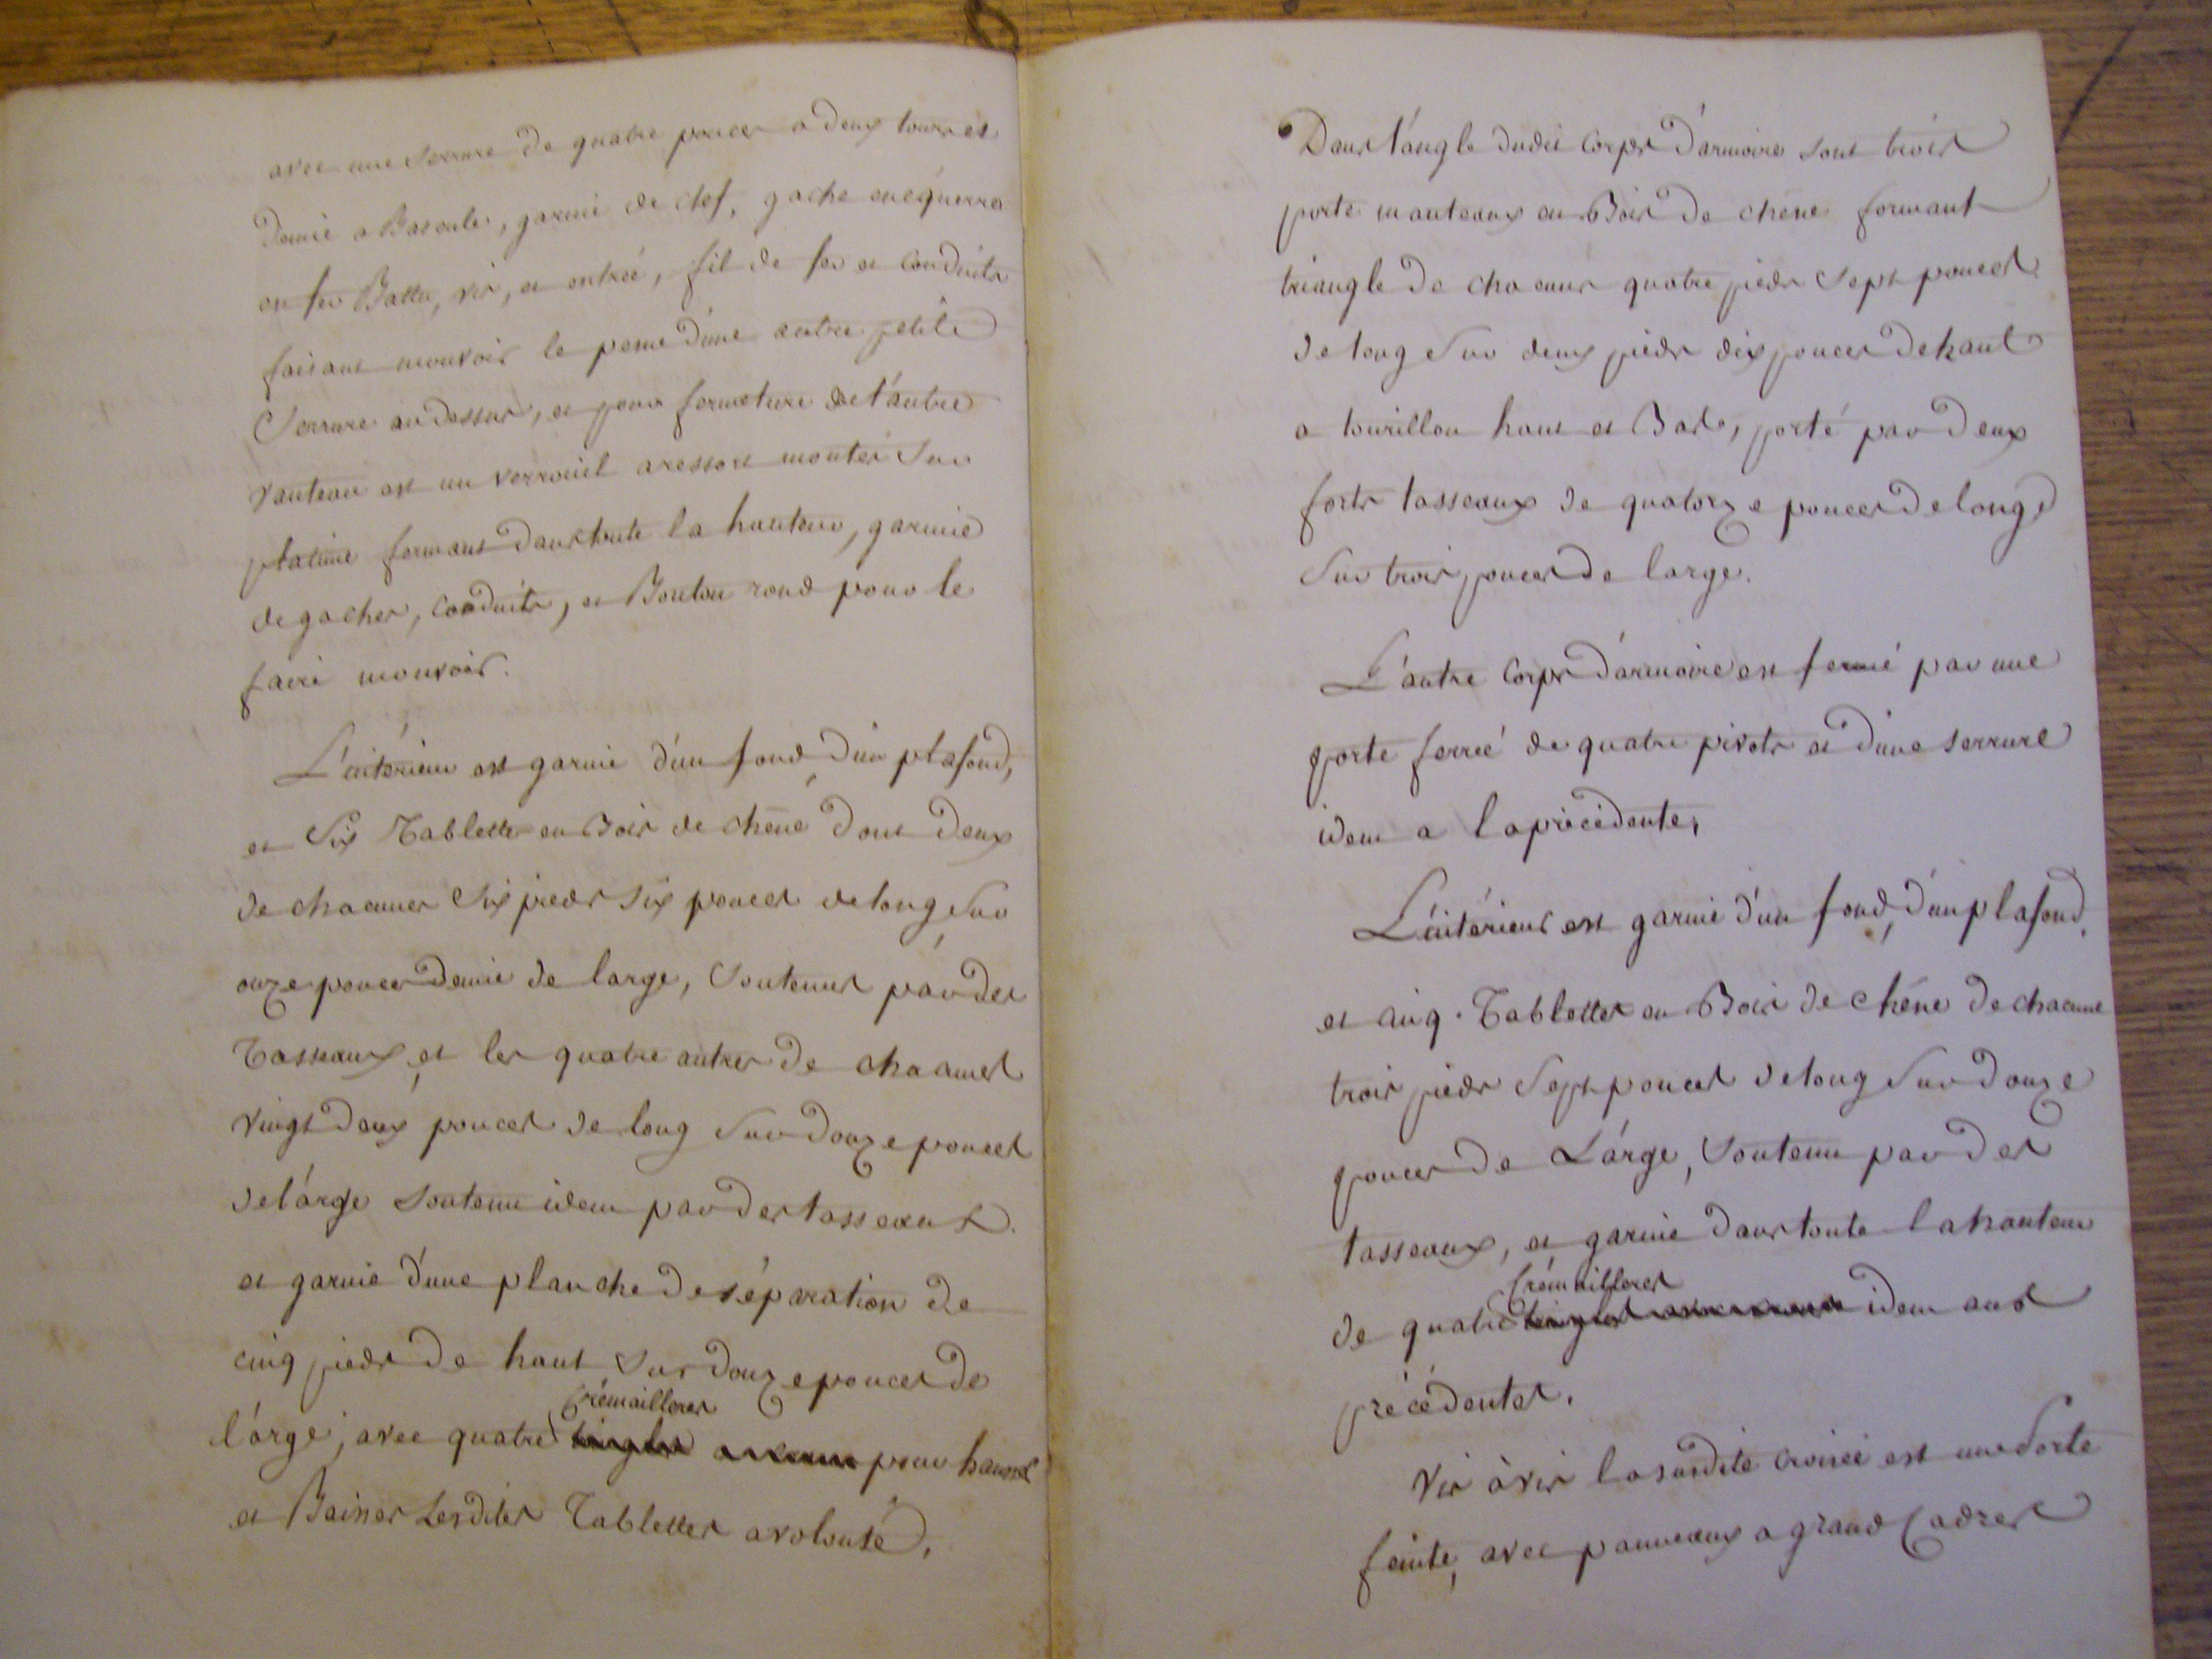 avec une Serrure de quatre pouces a deux tours et
demie a Bascule, garnie de clef, gache en équerre
en fer Battu, vis, et entreé, fil de fer et conduits
faisant mouvoir le pene d'une autre petite
Serrure au dessus, et pour fermeture de l'autre
vanteau est un verrouil a ressort montée Sur
platine fermant dans toute la hauteur, garnie
de gaches, conduits, et Bouton rond pour le
faire mouvoir.
L'intérieur est garnie d'un fond, d'un plafond,
et Six Tablettes en Bois de chêne dont deux
de chacunes Six pieds Six pouces de long Sur
onze pouces demie de large, Soutenues par des
Tasseaux, et les quatre autres de chacunes
vingt deux pouces de long Sur douze pouces
de lárge Soutenu idem par des tasseaux.
et garnie d'une planche de séparation de
cinq pieds de haut Sur douze pouces de
Crémailleres
lárge, avec quatre tringles pour hausser
et Baisser Lesdites Tablettes a volonté.
Dans l'angle dudit Corps d'armoire sont trois
porte manteaux en Bois de chêne formant
triangle de chacuns quatre pieds Sept pouces
de long Sur deux pieds dix pouces de haut
a tourillon haut et Bas, porté par deux
forts tasseaux de quatorze pouces de long
Sur trois pouces de large.
L'autre Corps d'armoire est fermé par une
porte ferreé de quatre pivots et d'une serrure
idem a la précédente,
L'intérieur est garnie d'un fond, d'un plafond,
et cinq. Tablettes en Bois de chêne de chacune
trois pieds Sept pouces de long Sur douze
pouces de Lárge, Soutenu par des
tasseaux, et garnie dans toute la hauteur
Crémailleres
de quatre tringles idem aux
précédentes.
Vis à vis la susdite croisée est une Porte
feinte, avec panneaux a grand Cadres